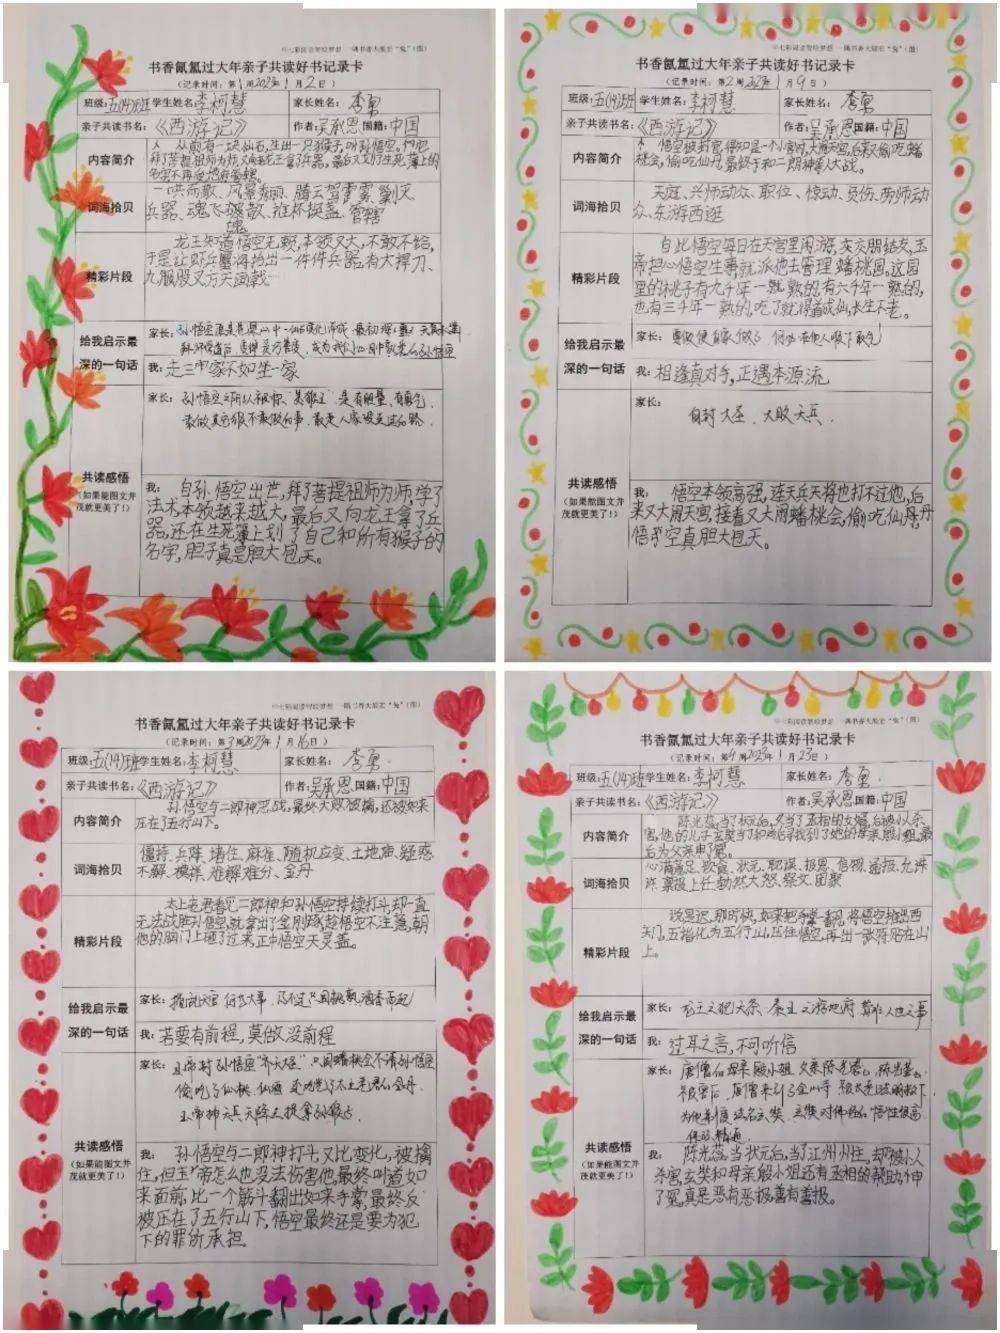 中七彩阅读智绘梦想 一隅书香大展宏“兔”（图）
书香氤氲过大年亲子共读好书记录卡
（记录时间：第1周2023年1月2日）
班级:五(14)班 学生姓名:李柯慧 家长姓名: 李勇
亲子共读书名:《西游记》 作者:吴承恩 国籍:中国
内容简介
从前有一块仙石,生出一只猴子,叫孙悟空。
词海拾贝
一哄而散、风景秀丽、腾云驾雾、剿灭
兵器、魂飞魄散、推杯换盏、管辖
精彩片段
龙王知道悟空无赖,本领又大,不敢不给,
于是让虾兵蟹将抬出一件件兵器,有大捍刀、
九股股叉方天画戟…
给我启示最
深的一句话
家长:
我: 走三中家不如坐一家
共读感悟
（如果能图文并
茂就更美了!）
家长: 孙悟空之所以被称“美猴王”是有胆量、有勇气
我: 自孙悟空出世,拜了菩提祖师为师,学了
法术,本领越来越大,最后又向龙王拿了兵
器,还在生死簿上划了自己和所有猴子的
名字,胆子真是胆大包天。
中七彩阅读智绘梦想 一隅书香大展宏“兔”（图）
书香氤氲过大年亲子共读好书记录卡
（记录时间：第2周2023年1月9日）
班级:五(14)班 学生姓名:李柯慧 家长姓名: 李勇
亲子共读书名:《西游记》 作者:吴承恩 国籍:中国
内容简介
悟空被封官,得知是一个小官时,大闹天宫,后来又偷吃蟠
桃会,偷吃仙丹,最终于和二郎神等人大战。
词海拾贝
天庭、兴师动众、职位、惊动、负伤、劳师动
众、东游西逛
精彩片段
自此悟空每日在天宫里闲游,広交朋结友,玉
帝担心悟空生事就派他去管理蟠桃园。这园
里的桃子有九千年一熟的,有六千年一熟的,
也有三千年一熟的,吃了就得道成仙,长生不老。
给我启示最
深的一句话
家长:
我: 相逢真对手,正遇本源流
共读感悟
（如果能图文并
茂就更美了!）
家长:
自封大圣、大败天兵.
我: 悟空本领高强,连天兵天将也打不过他,后
来又大闹天宫,接着又大闹蟠桃会,偷吃仙丹,丹
悟孑空真胆大包天。
中七彩阅读智绘梦想 一隅书香大展宏“兔”（图）
书香氤氲过大年亲子共读好书记录卡
（记录时间：第3周2023年1月16日）
班级:五(14)班 学生姓名:李柯慧 家长姓名: 李勇
亲子共读书名:《西游记》 作者:吴承恩 国籍:中国
内容简介
孙悟空与二郎神恶战,最终大败被擒,还被如来
压在了五行山下。
词海拾贝
僵持、兵阵、堵住、麻雀、随机应变、土地庙、疑惑
不解、模样、难解难分、金丹
精彩片段
太上老君看见二郎神和孙悟空持续打斗,却一直
无法战胜孙悟空,就拿出了金刚琢,趁悟空不注意,朝
他的脑门上砸了过来,正中悟空天灵盖。
给我启示最
深的一句话
家长:
我: 若要有前程,莫做没前程
共读感悟
（如果能图文并
茂就更美了!）
家长: 玉帝封孙悟空“齐天大圣” 只因蟠桃会不请孙悟空
偷吃了仙桃、仙酒 还吃光了太上老君的金丹.
玉帝神天兵天将去捉拿孙悟空
我: 孙悟空与二郎神打斗,又比变化,被擒
住,但玉帝怎么也没法伤害他,最终叫道如
来面前,比一个筋斗翻出如来手掌,最终反
被压在了五行山下,悟空最终还是要为犯
下的罪所承担
中七彩阅读智绘梦想 一隅书香大展宏“兔”（图）
书香氤氲过大年亲子共读好书记录卡
（记录时间：第4周2023年1月23日）
班级:五(14)班 学生姓名:李柯慧 家长姓名: 李勇.
亲子共读书名:《西游记》 作者:吴承恩 国籍:中国
内容简介
陈光蕊,当了状元后,又当了丞相的女婿,后被小人杀
害,他的儿子玄奘当了和尚后寻找到了她的母亲殷小姐,最
后为父亲申了冤。
词海拾贝
心满意足、饮食、状元、耽误、报恩、信物、通报、允许
禀报、上任、勃然大怒、祭文、团聚
精彩片段
说是迟,那时快,如来把手掌一翻,将悟空推出西
天门,五指化为五行山,压住悟空,再出一张符贴在山
上。
给我启示最
深的一句话
家长:
我: 过耳之言,不可听信
共读感悟
（如果能图文并
茂就更美了!）
家长: 唐僧的母亲殷小姐 父亲陈光蕊,陈光蕊
我: 陈光蕊当状元后,当了江州州主,却被小人
杀害,玄奘和母亲殷小姐还有丞相的帮助,伸
了冤,真是恶有恶报,善有善报。